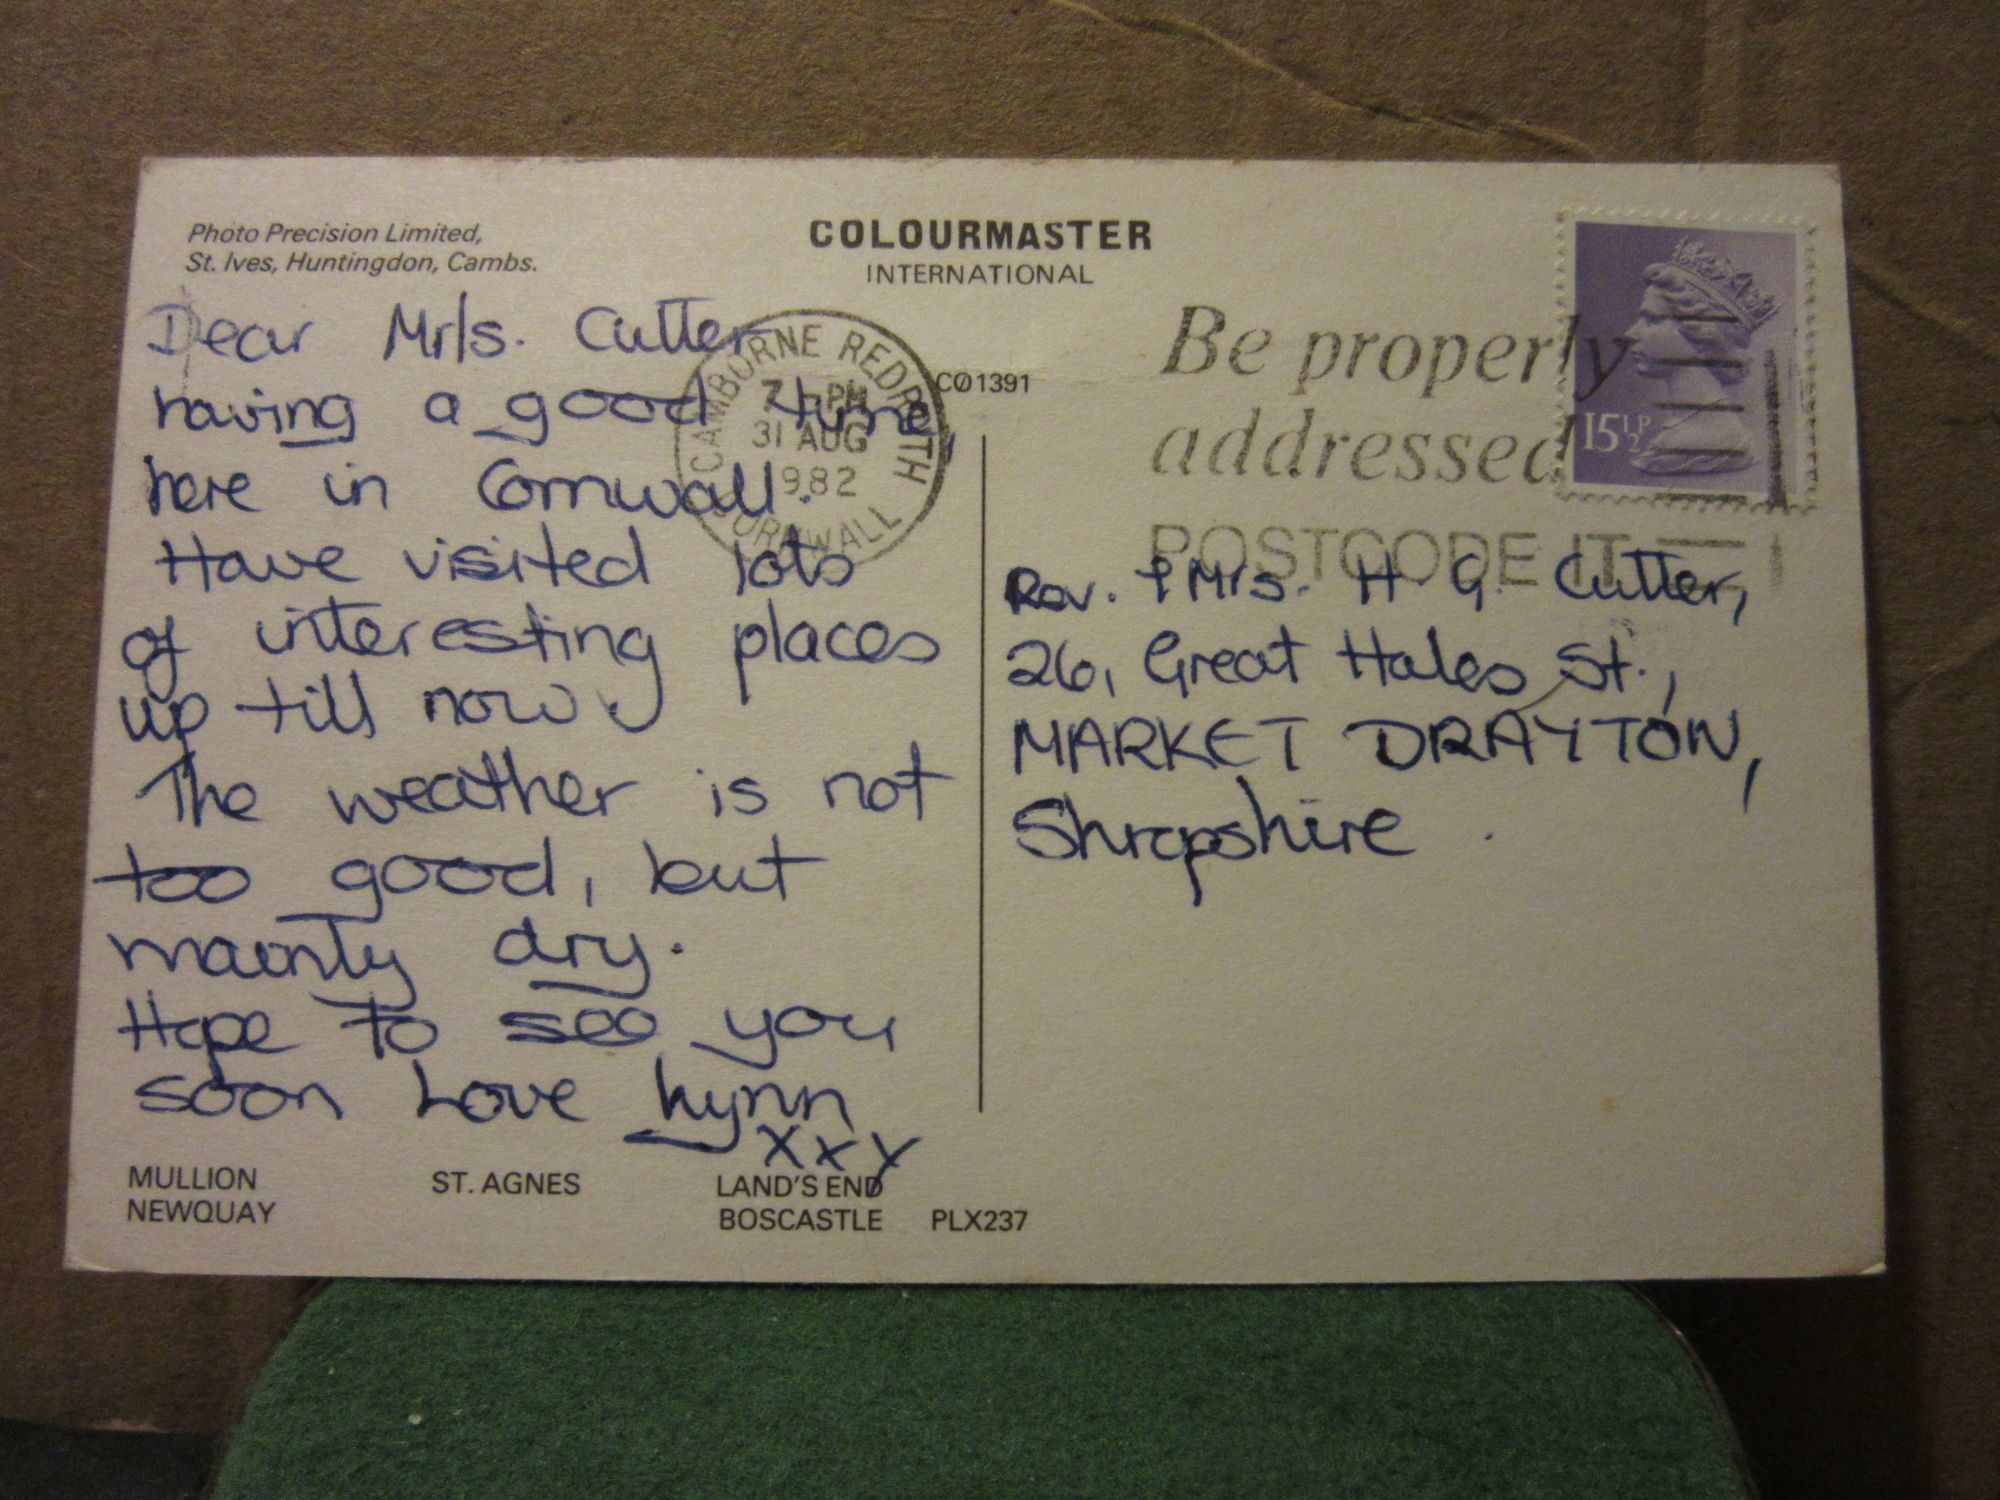 Photo Precision Limited,
St. Ives, Huntingdon, Cambs.
COLOURMASTER
INTERNATIONAL
Dear Mr/s. Cutter
having a good time,
here in Cornwall.
Have visited lots
of interesting places
up till now.
The weather is not
too good, but
mainly dry.
Hope to see you
soon Love Lynn
xxx
MULLION
NEWQUAY
ST. AGNES
LAND'S END
BOSCASTLE
PLX237
CAMBORNE REDRUTH
7 - PM
31 AUG
1982
CORNWALL
CO1391
Be properly
addressed
POSTCODE IT
15½P
Rev. + Mrs. H. G. Cutter,
26, Great Hales St.,
MARKET DRAYTON,
Shropshire.